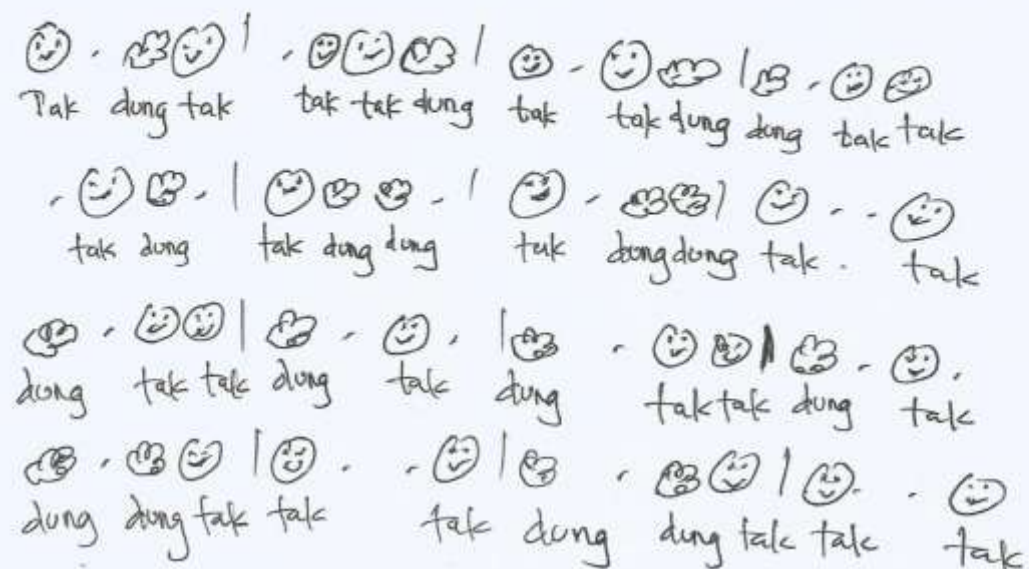 Tak dung tak tak tak dung tak tak dung dung tak tak
tak dung tak dung dung tak dung dung tak tak
dung tak tak dung tak dung tak tak dung tak
dung dung tak tak tak dung dung tak tak tak